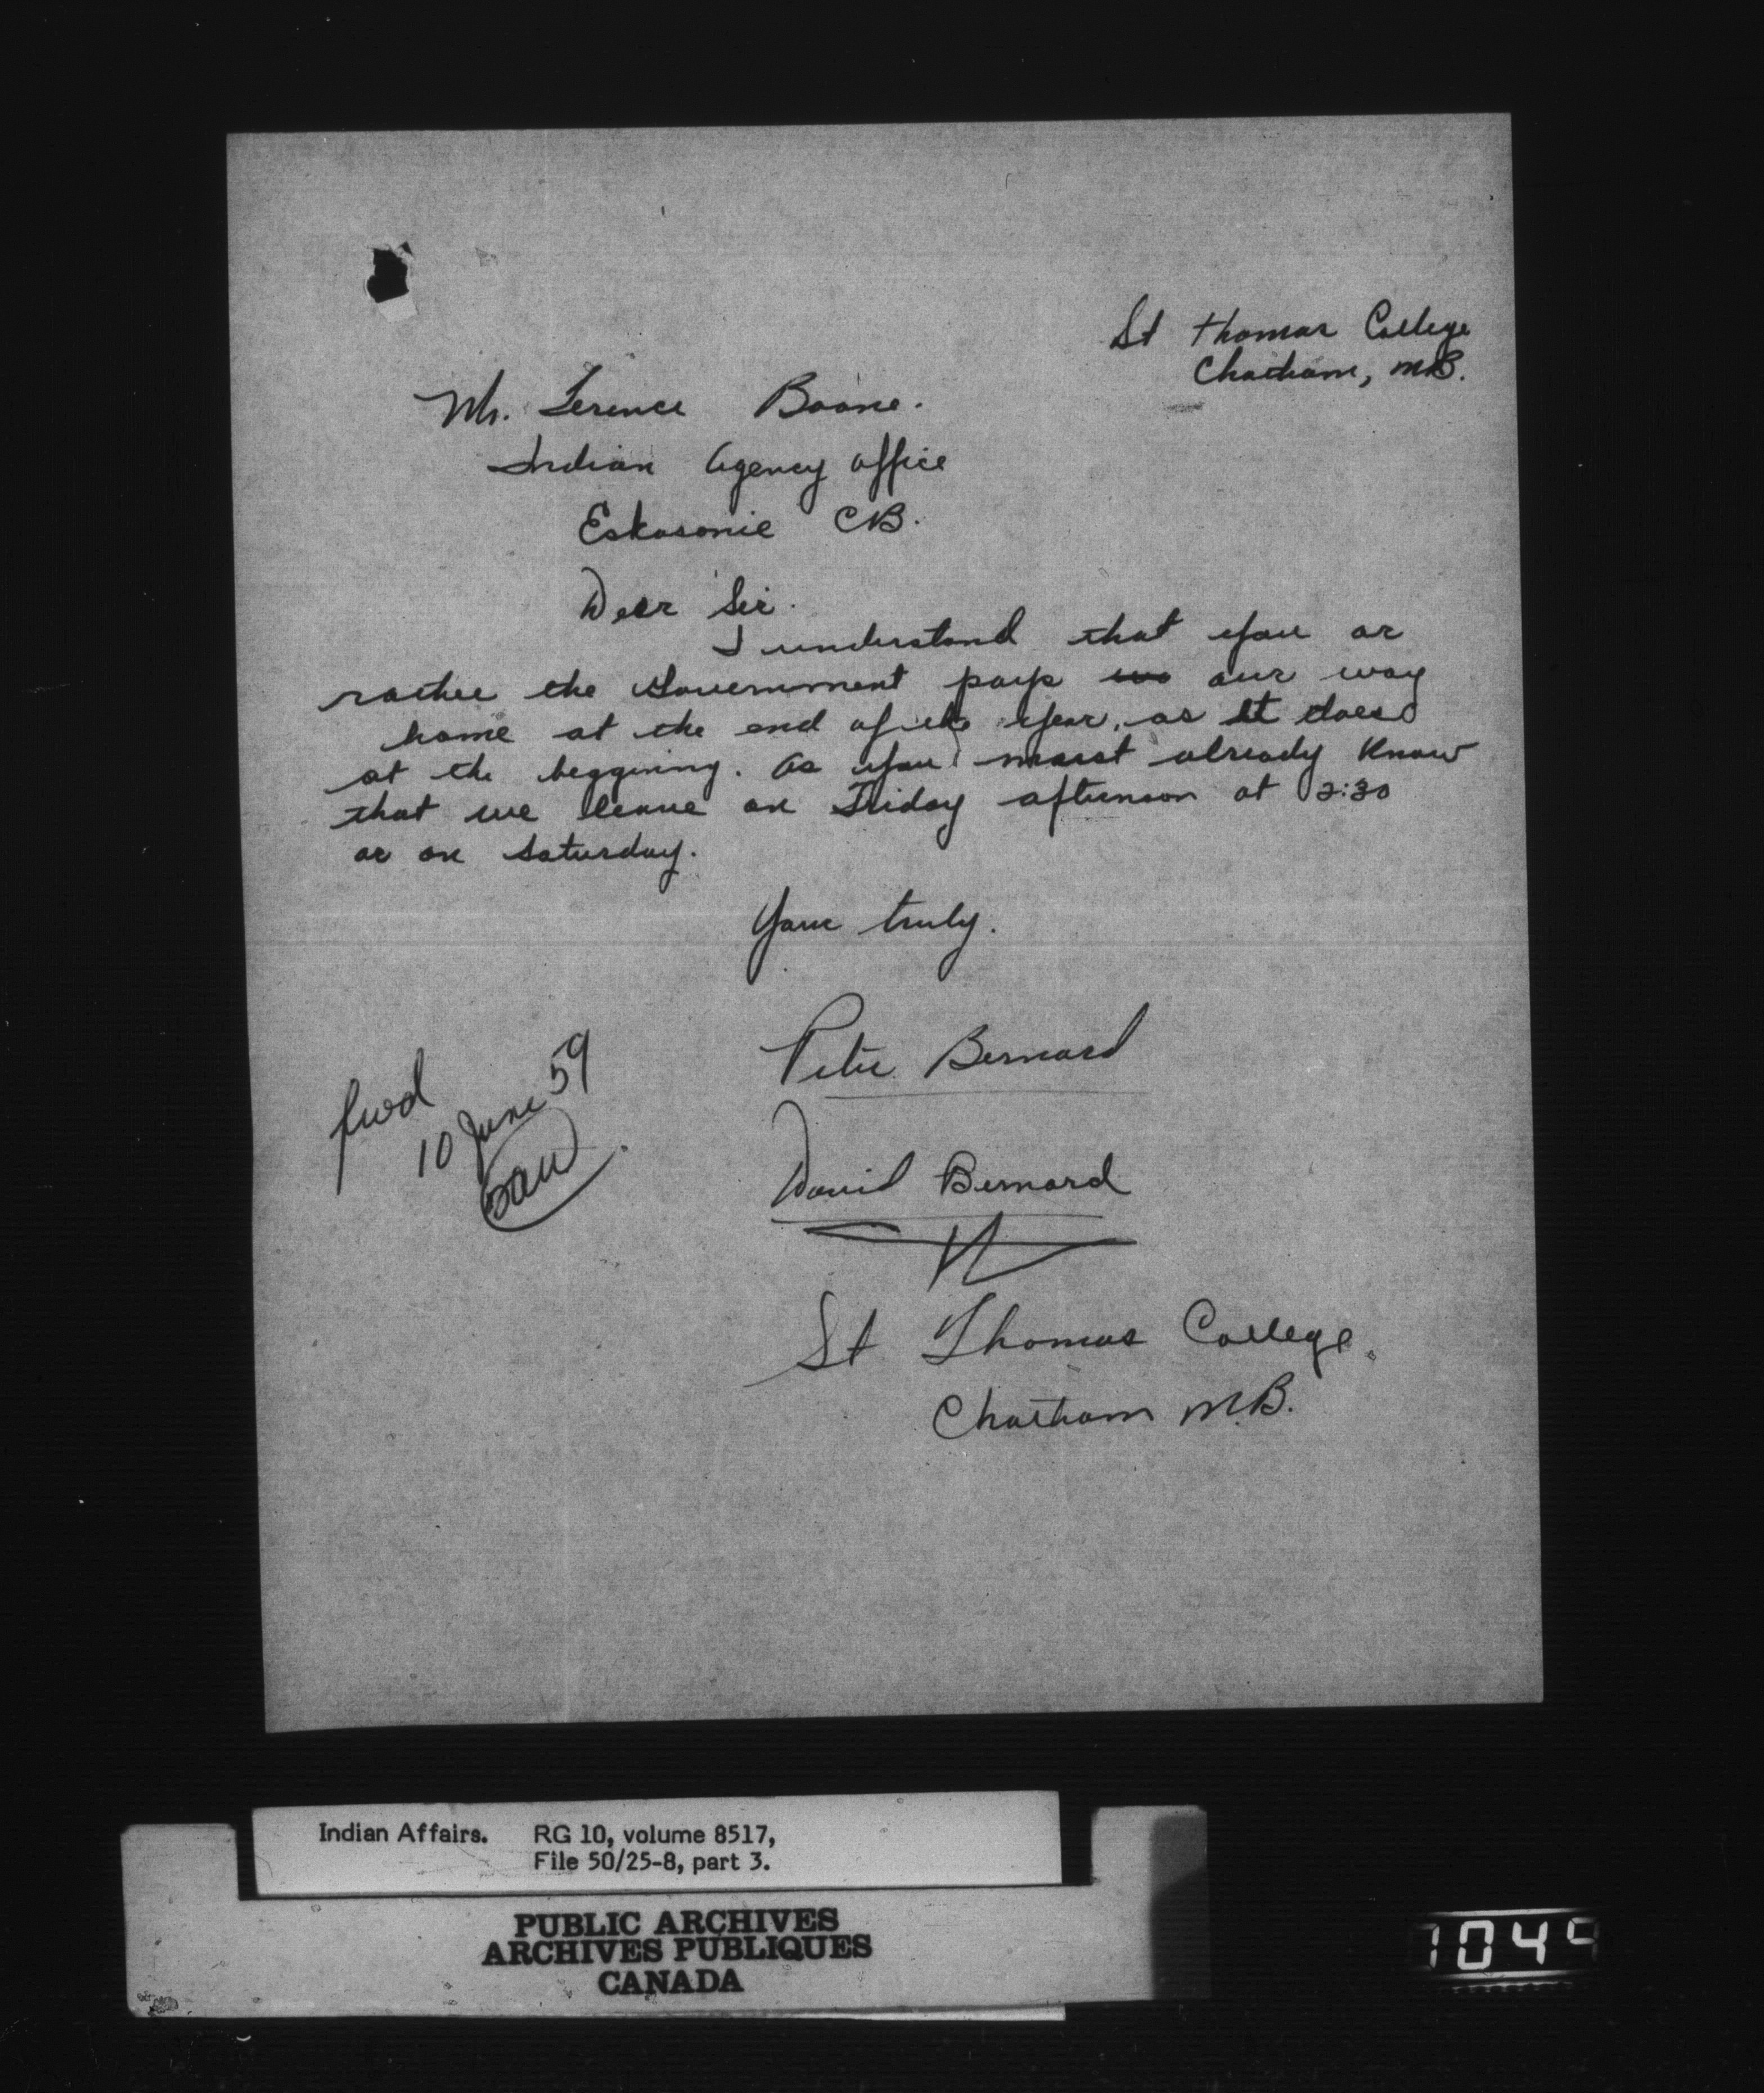 St Thomas College
Chatham, N.B.
Mr. Terence Boone.
Indian Agency Office
Eskasonie CB.
Dear Sir.
I understand that you or
rather the Government pays our way
home at the end of the year, as it does
at the beggining. As you must already know
that we leave on Friday afternoon at 2:30
or on Saturday.
Your truly.
Peter Bernard
David Bernard
St Thomas College.
Chatham N.B.
fwd
10 June 59
Indian Affairs. RG 10, volume 8517,
File 50/25-8, part 3.
PUBLIC ARCHIVES
ARCHIVES PUBLIQUES
CANADA